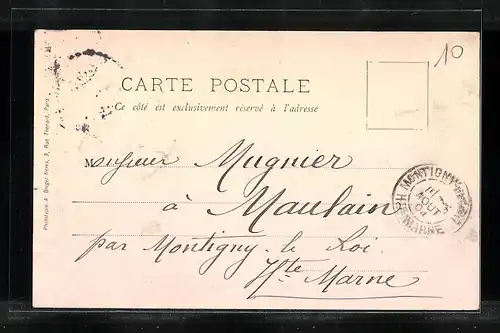 10
CARTE POSTALE
Ce côté est exclusivement réservé à l'adresse
Monsieur Mugnier
à Maulain
par Montigny-le Roi.
Hte Marne
MONTIGNY
AOUT
04
Hte MARNE
Phototypie A. Berger frères, 9, Rue Thénard, Paris